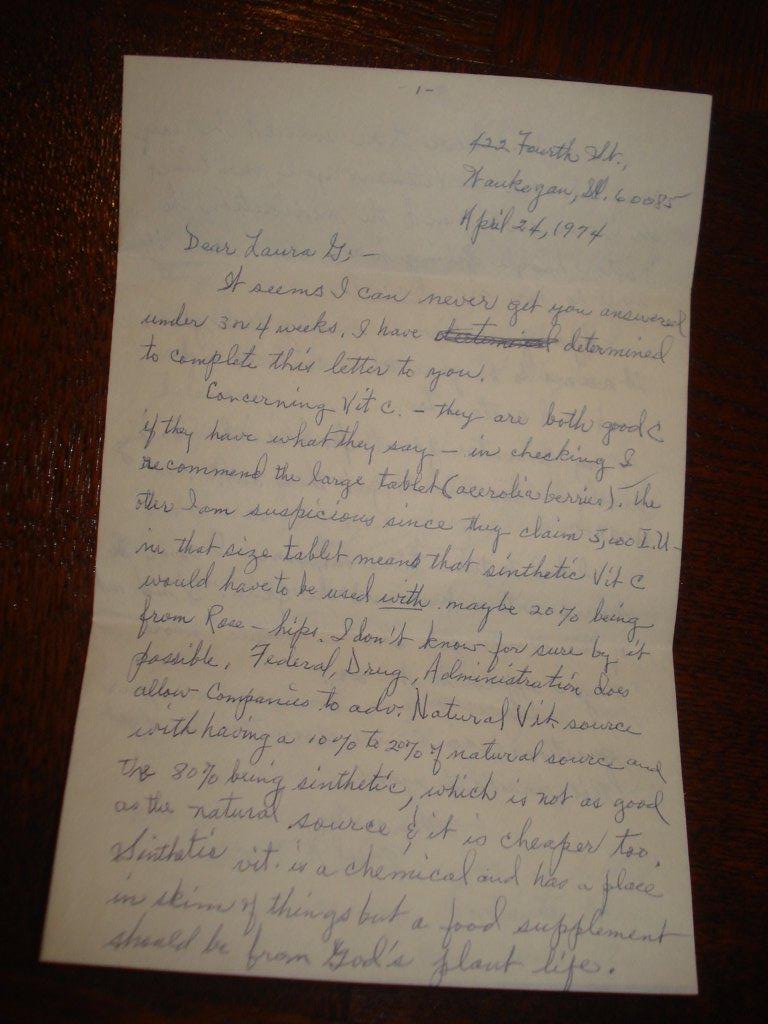 1-
422 Fourth St.,
Waukegan, Il. 60085
April 24, 1974
Dear Laura G; -
It seems I can never get you answered
under 3 or 4 weeks. I have determined
to complete this letter to you.
Concerning Vit C. - they are both good C
if they have what they say - in checking I
recommend the large tablet (acerolia berries). The
other I am suspicious since they claim 5,000 I.U -
in that size tablet means that sinthetic Vit C
would have to be used with maybe 20% being
from Rose - hips. I don't know for sure by it
possible. Federal, Drug, Administration does
allow Companies to adv. Natural Vit. source
with having a 10% to 20% of natural source and
the 80% being sinthetic, which is not as good
as the natural source & it is cheaper too.
Sinthetic vit. is a chemical and has a place
in skim of things but a food supplement
should be from God's plant life.